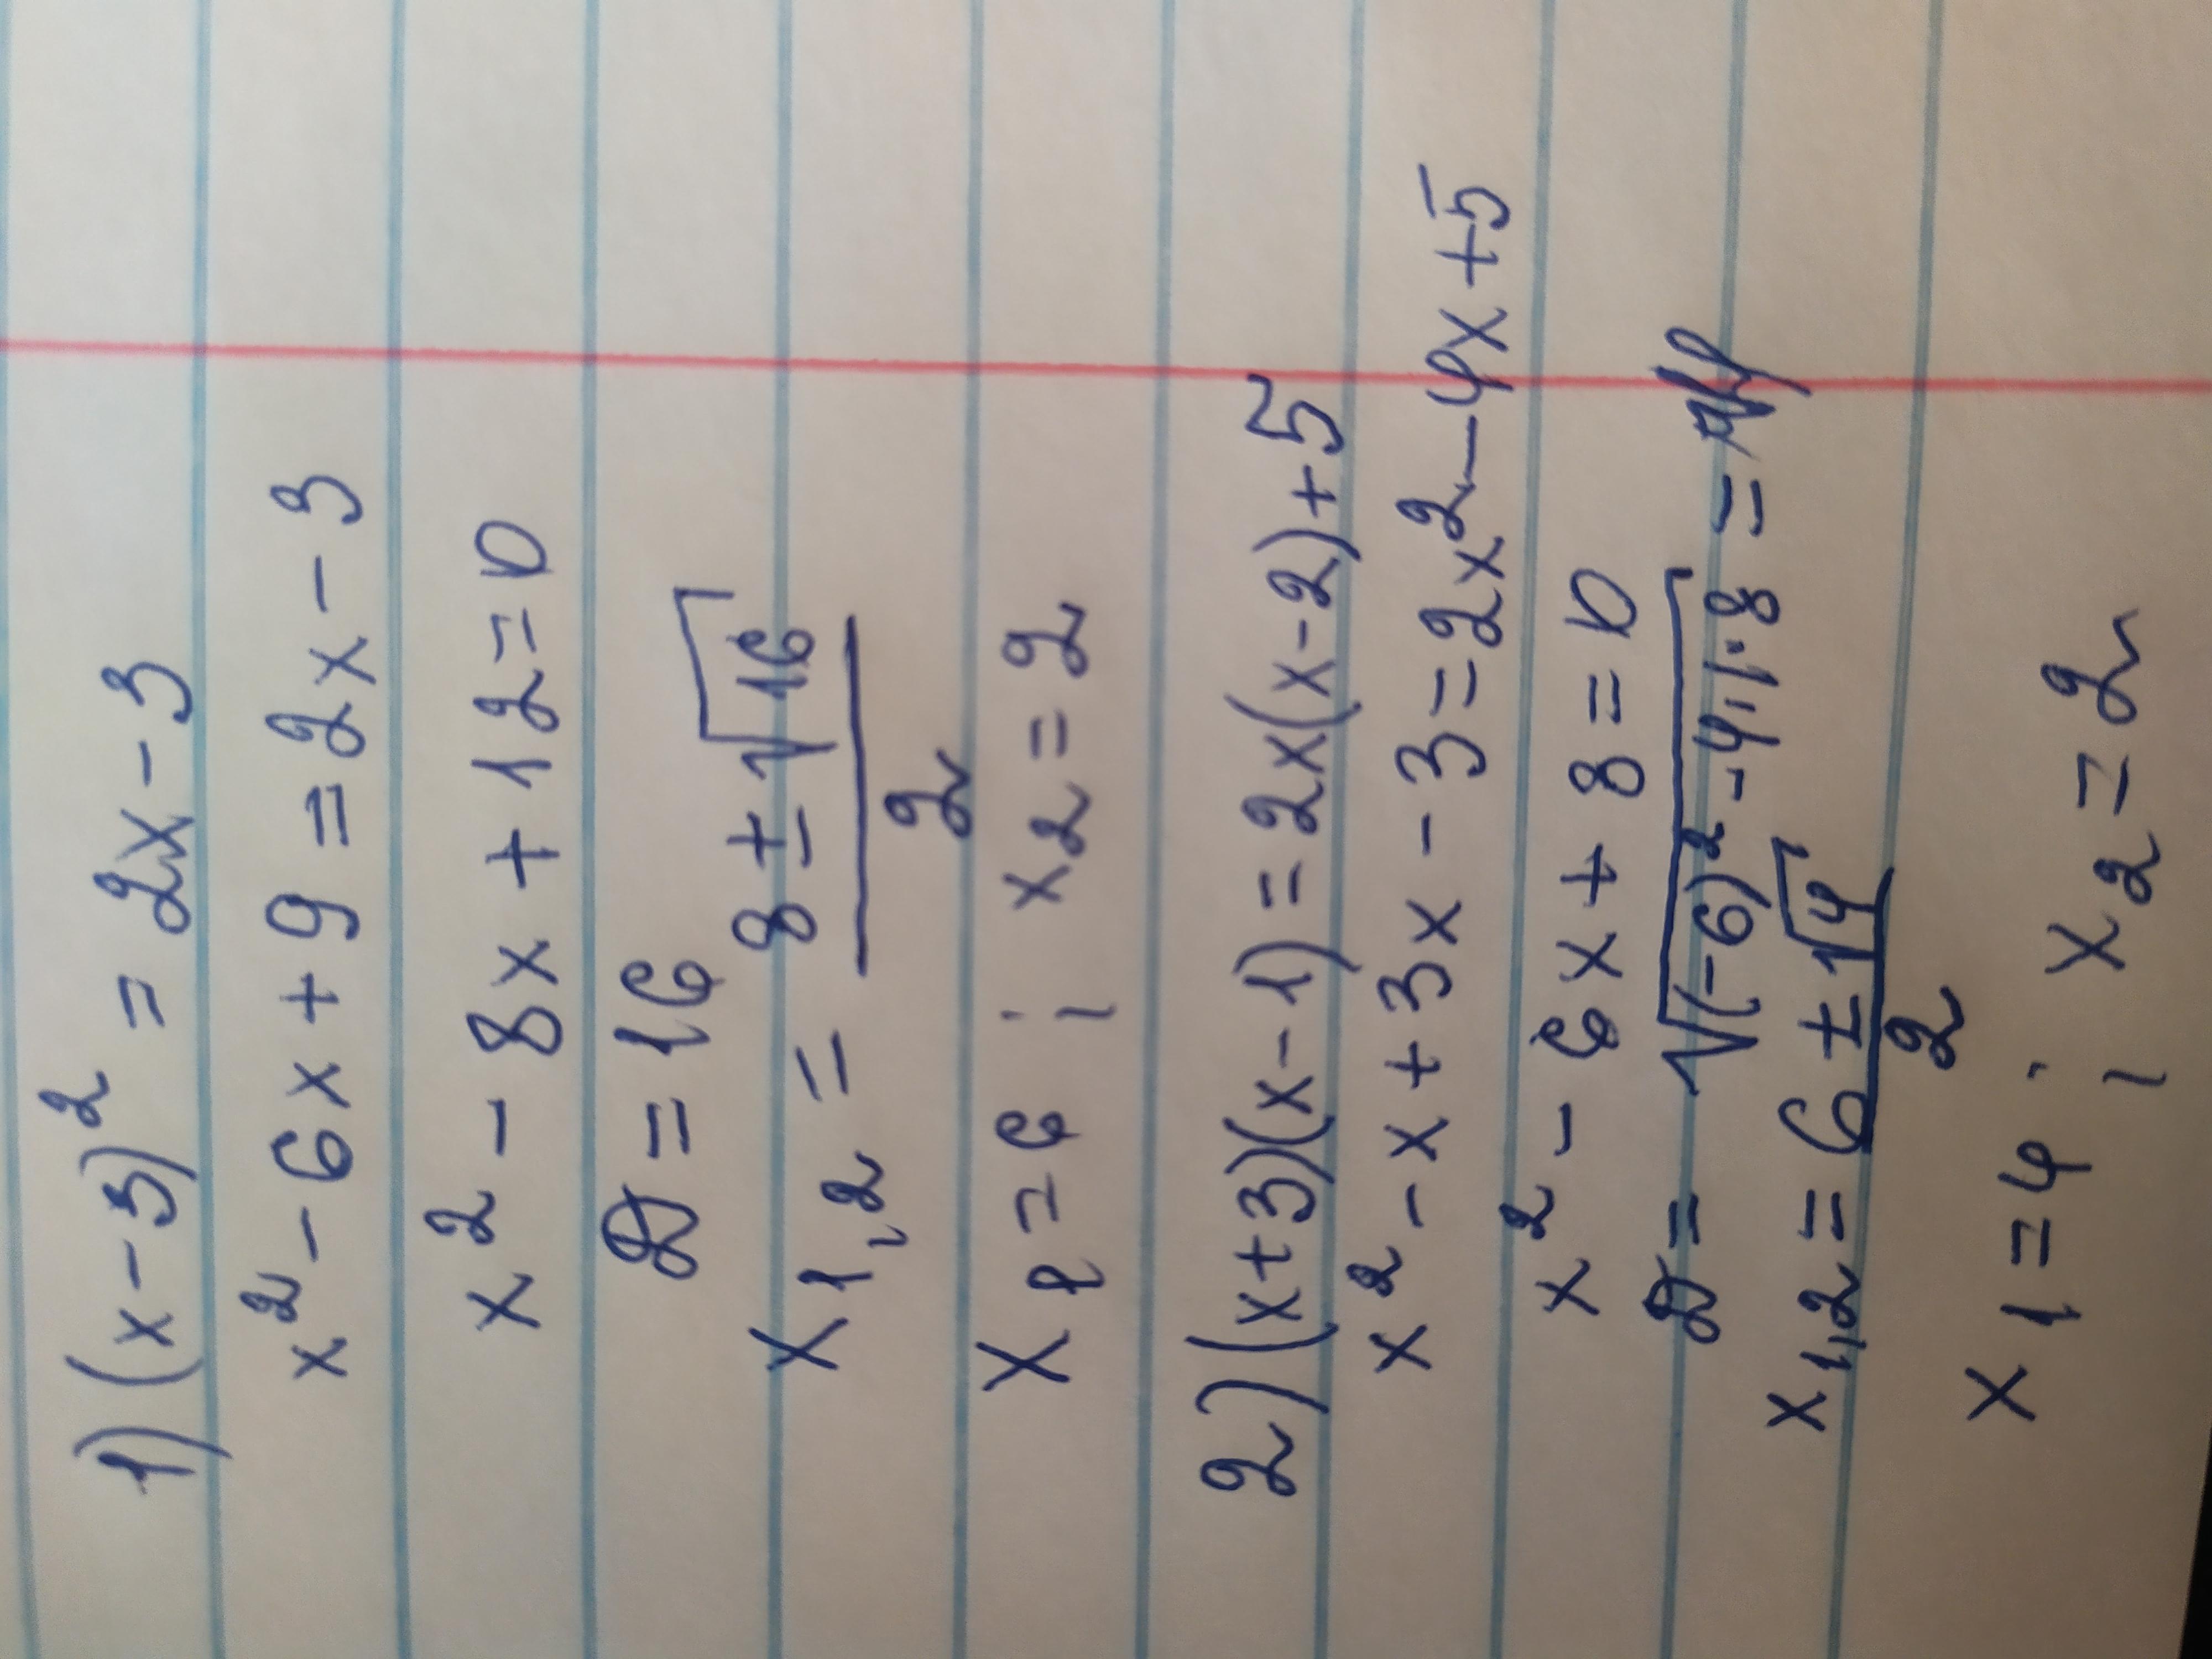 1) (x-3)² = 2x-3
x²-6x+9=2x-3
x²-8x+12=0
D=16
x1,2 = (8±√16)/2
x1=6 ; x2=2
2) (x+3)(x-1)=2x(x-2)+5
x²-x+3x-3=2x²-4x+5
x²-6x+8=0
D= √(-6)²-4·1·8 =
x1,2= (6±√4)/2
x1=4 ; x2=2